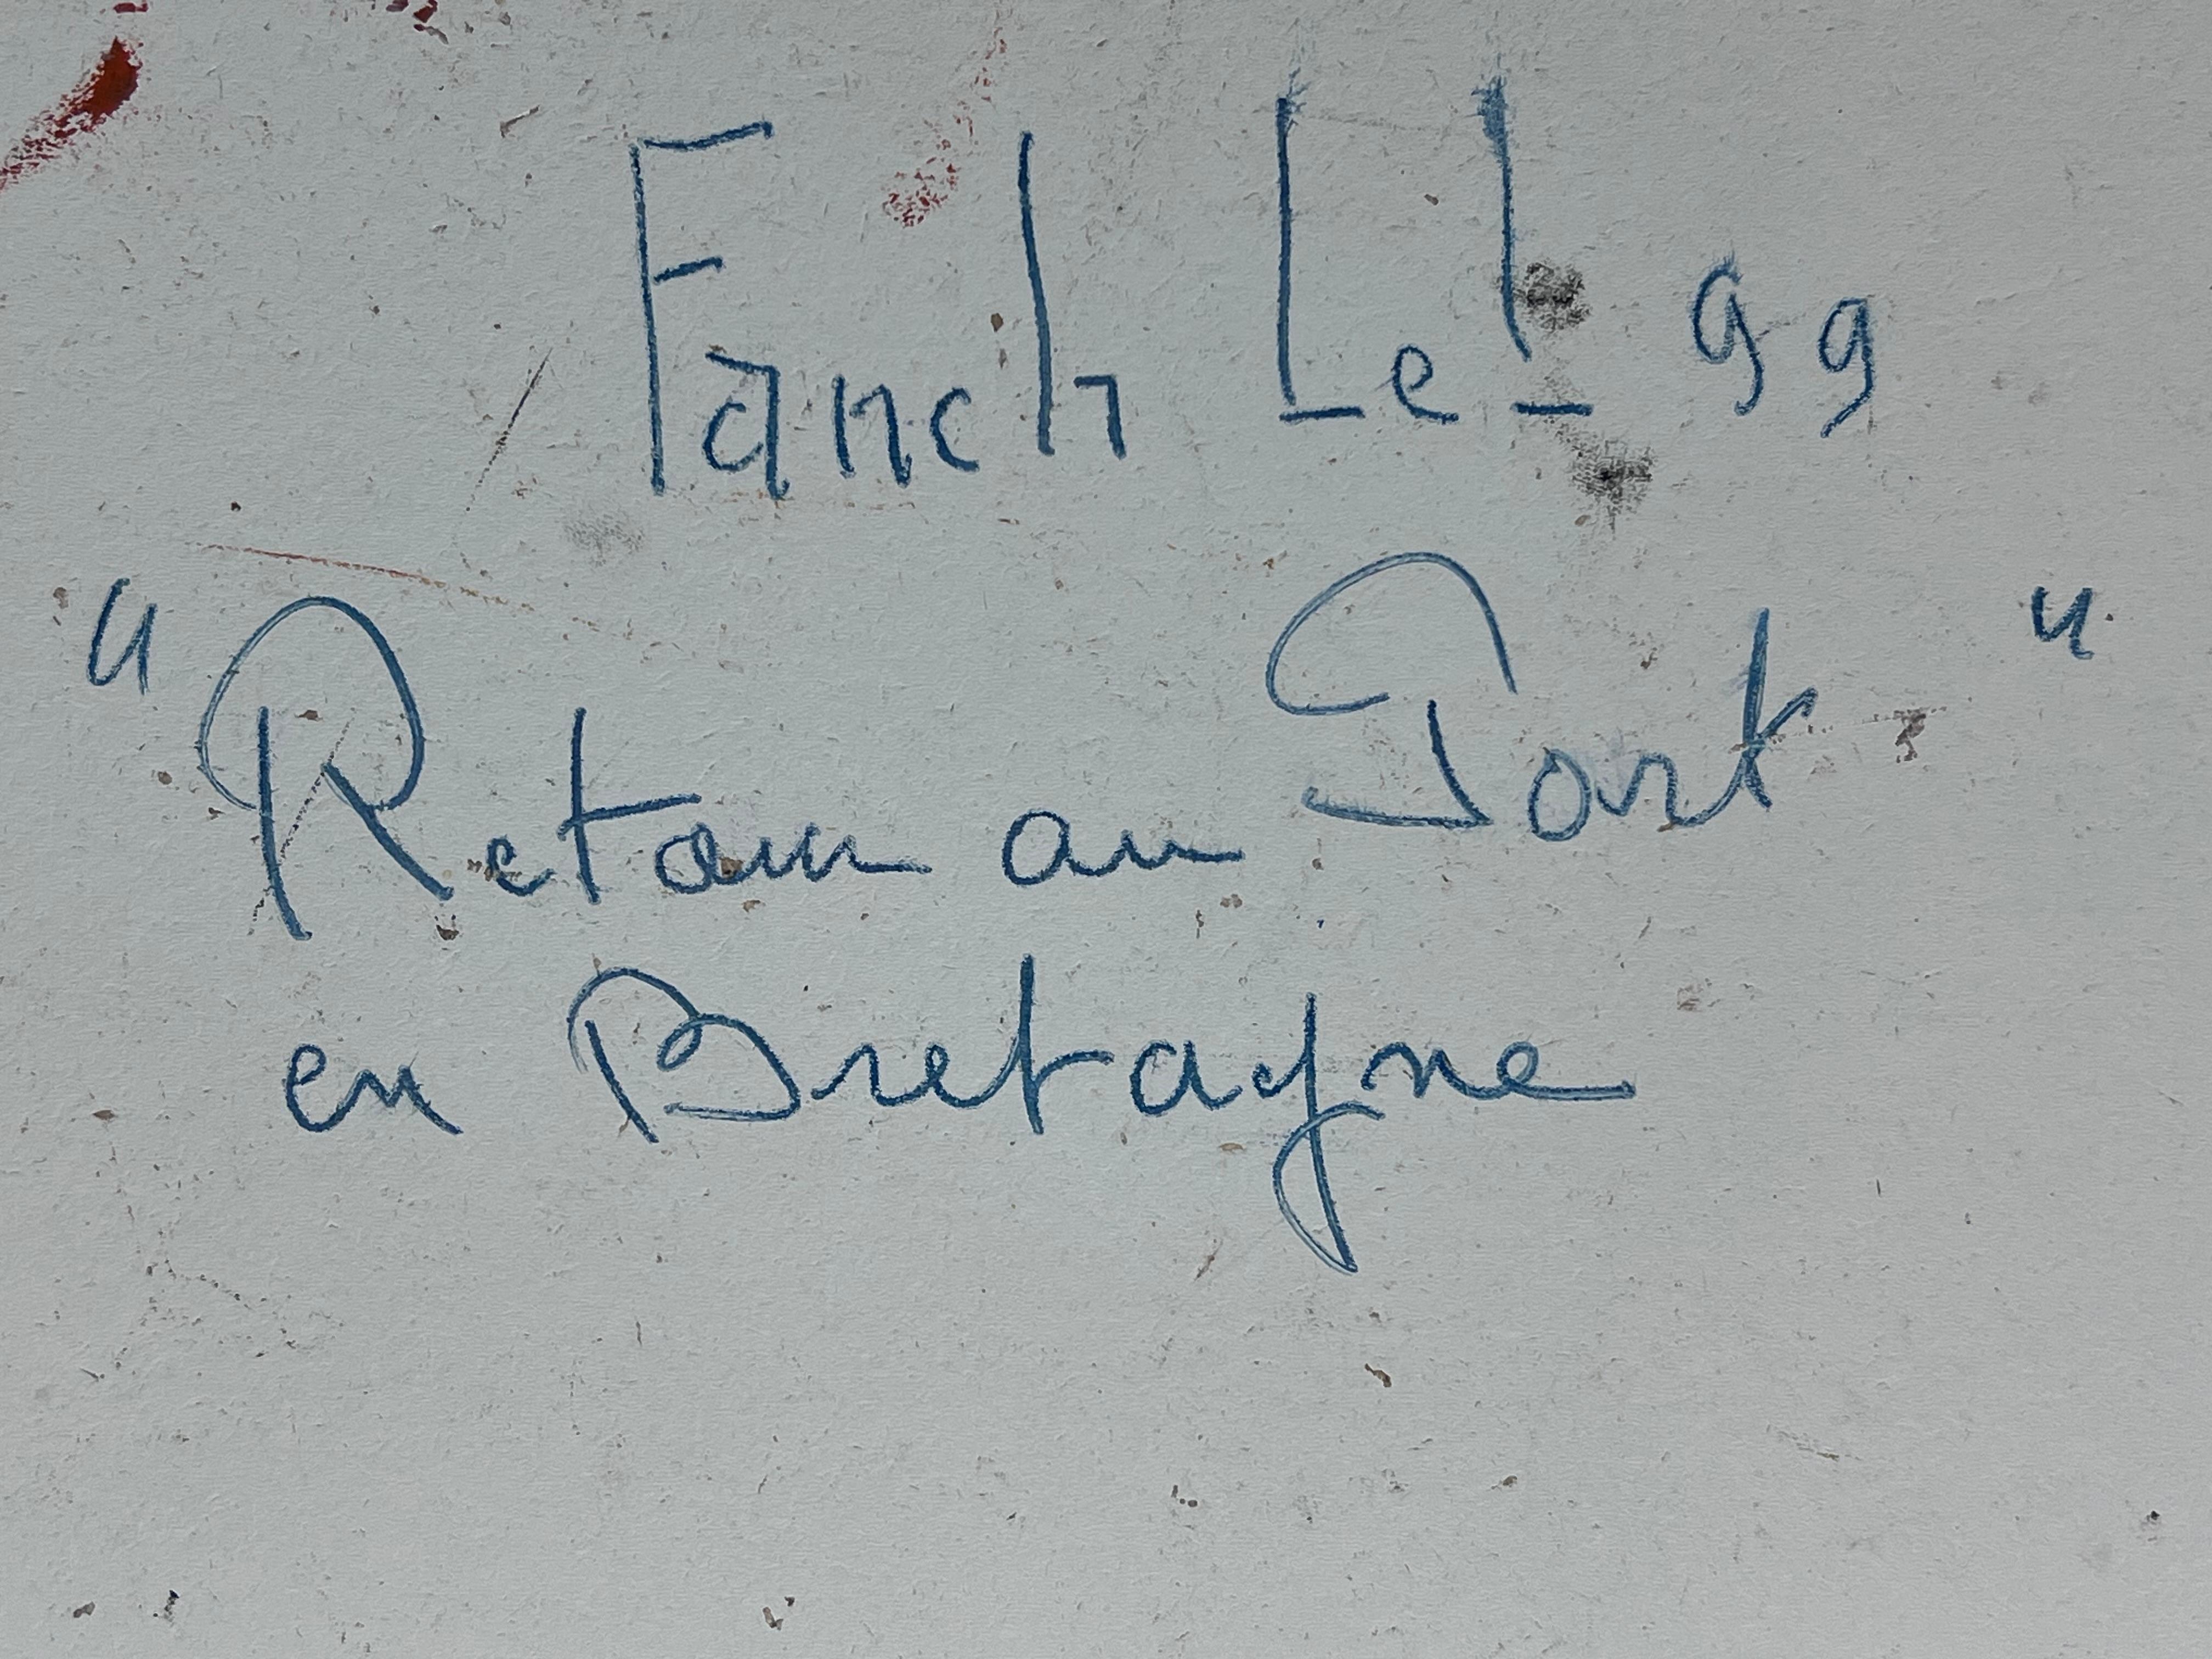 Fanch Lel 99
"Retour au Port"
en Bretagne